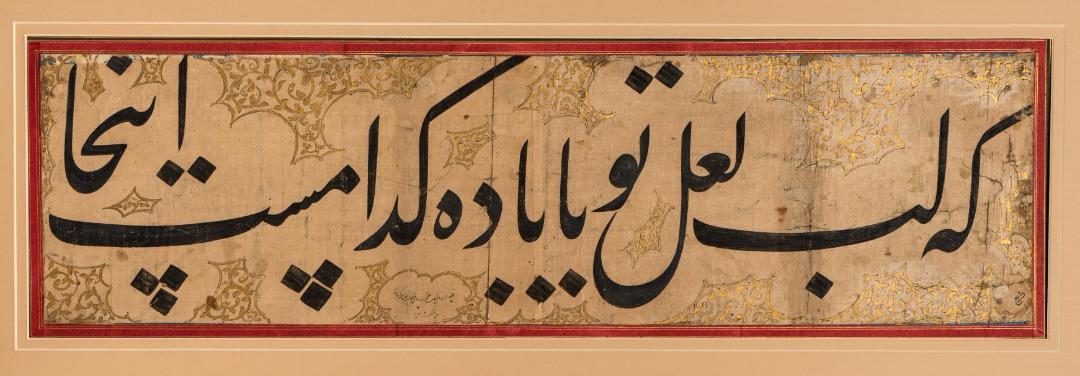 که لب لعل تو یا باده کدامست اینجا